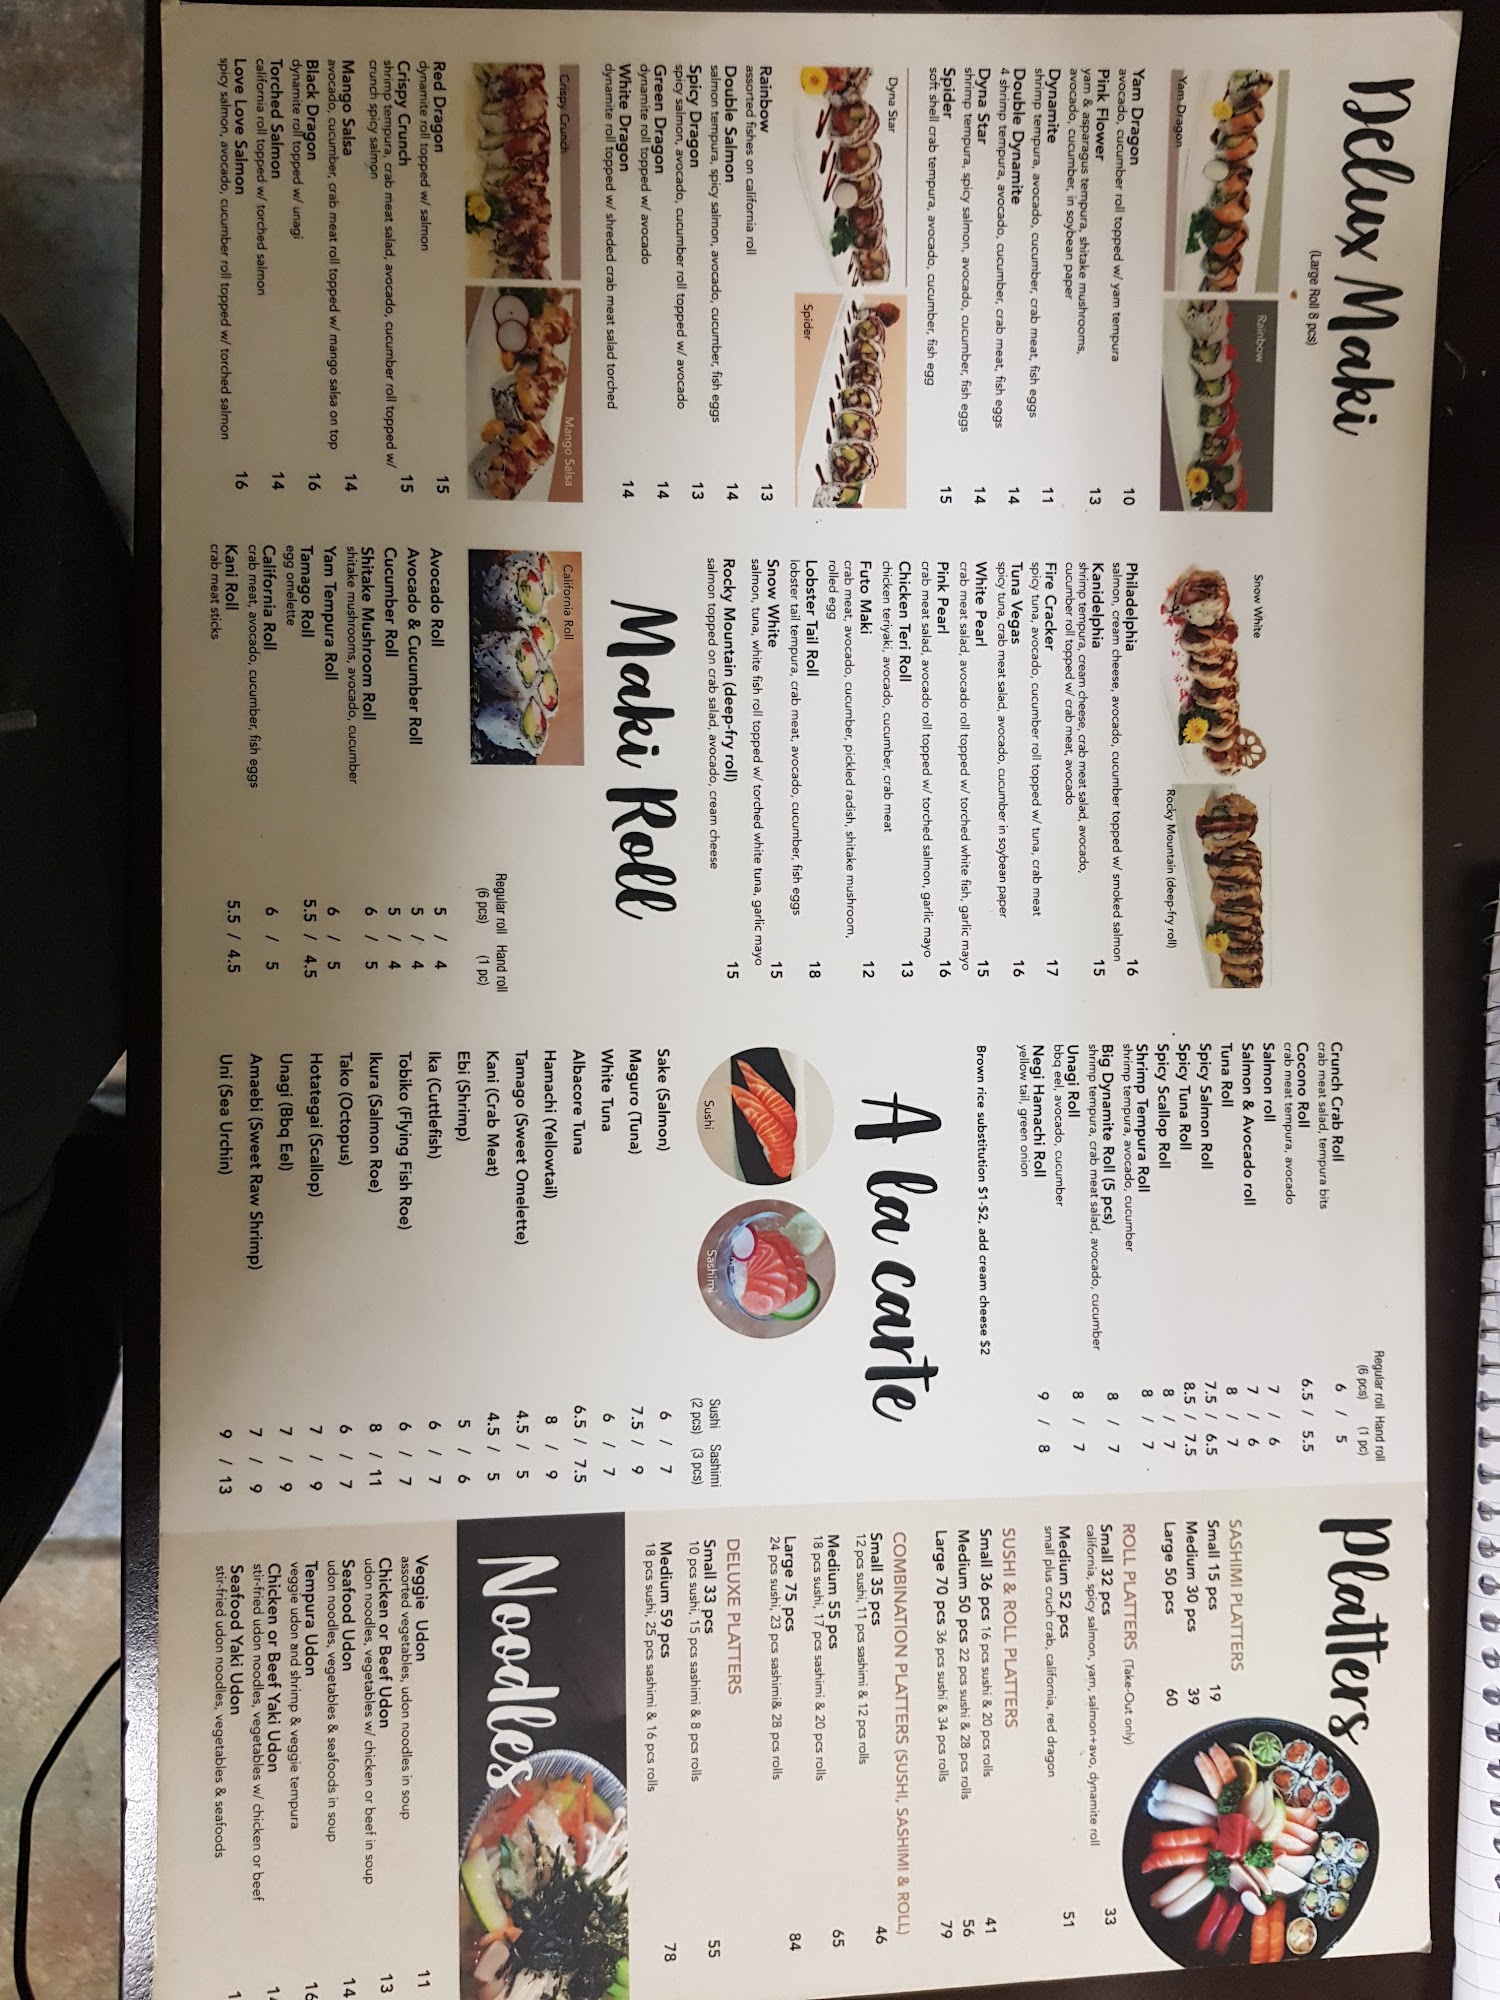 Delux Maki
(Large Roll 8 pcs)
Yam Dragon
Rainbow
Yam Dragon 10
avocado, cucumber roll topped w/ yam tempura
Pink Flower 13
yam & asparagus tempura, shitake mushrooms,
avocado, cucumber, in soybean paper
Dynamite 11
shrimp tempura, avocado, cucumber, crab meat, fish eggs
Double Dynamite 14
4 shrimp tempura, avocado, cucumber, crab meat, fish eggs
Dyna Star 14
shrimp tempura, spicy salmon, avocado, cucumber, fish eggs
Spider 15
soft shell crab tempura, avocado, cucumber, fish egg
Dyna Star
Spider
Rainbow 13
assorted fishes on california roll
Double Salmon 14
salmon tempura, spicy salmon, avocado, cucumber, fish eggs
Spicy Dragon 13
spicy salmon, avocado, cucumber roll topped w/ avocado
Green Dragon 14
dynamite roll topped w/ avocado
White Dragon 14
dynamite roll topped w/ shreded crab meat salad torched
Crispy Crunch
Mango Salsa
Red Dragon 15
dynamite roll topped w/ salmon
Crispy Crunch 15
shrimp tempura, crab meat salad, avocado, cucumber roll topped w/
crunch spicy salmon
Mango Salsa 14
avocado, cucumber, crab meat roll topped w/ mango salsa on top
Black Dragon 16
dynamite roll topped w/ unagi
Torched Salmon 14
california roll topped w/ torched salmon
Love Love Salmon 16
spicy salmon, avocado, cucumber roll topped w/ torched salmon
Snow White
Rocky Mountain (deep-fry roll)
Philadelphia 16
salmon, cream cheese, avocado, cucumber topped w/ smoked salmon
Kanidelphia 15
shrimp tempura, cream cheese, crab meat salad, avocado,
cucumber roll topped w/ crab meat, avocado
Fire Cracker 17
spicy tuna, avocado, cucumber roll topped w/ tuna, crab meat
Tuna Vegas 16
spicy tuna, crab meat salad, avocado, cucumber in soybean paper
White Pearl 15
crab meat salad, avocado roll topped w/ torched white fish, garlic mayo
Pink Pearl 16
crab meat salad, avocado roll topped w/ torched salmon, garlic mayo
Chicken Teri Roll 13
chicken teriyaki, avocado, cucumber, crab meat
Futo Maki 12
crab meat, avocado, cucumber, pickled radish, shitake mushroom,
rolled egg
Lobster Tail Roll 18
lobster tail tempura, crab meat, avocado, cucumber, fish eggs
Snow White 15
salmon, tuna, white fish roll topped w/ torched white tuna, garlic mayo
Rocky Mountain (deep-fry roll) 15
salmon topped on crab salad, avocado, cream cheese
Maki Roll
California Roll
Regular roll Hand roll
(6 pcs) (1 pc)
Avocado Roll 5 / 4
Avocado & Cucumber Roll 5 / 4
Cucumber Roll 5 / 4
Shitake Mushroom Roll 6 / 5
shitake mushrooms, avocado, cucumber
Yam Tempura Roll 6 / 5
Tamago Roll 5.5 / 4.5
egg omelette
California Roll 6 / 5
crab meat, avocado, cucumber, fish eggs
Kani Roll 5.5 / 4.5
crab meat sticks
Regular roll Hand roll
(6 pcs) (1 pc)
Crunch Crab Roll 6 / 5
crab meat salad, tempura bits
Cocono Roll 6.5 / 5.5
crab meat tempura, avocado
Salmon roll 7 / 6
Salmon & Avocado roll 7 / 6
Tuna Roll 8 / 7
Spicy Salmon Roll 7.5 / 6.5
Spicy Tuna Roll 8.5 / 7.5
Spicy Scallop Roll 8 / 7
Shrimp Tempura Roll 8 / 7
shrimp tempura, avocado, cucumber
Big Dynamite Roll (5 pcs) 8 / 7
shrimp tempura, crab meat salad, avocado, cucumber
Unagi Roll 8 / 7
bbq eel, avocado, cucumber
Negi Hamachi Roll 9 / 8
yellow tail, green onion
Brown rice substitution $1-$2, add cream cheese $2
A la carte
Sushi
Sashimi
Sushi Sashimi
(2 pcs) (3 pcs)
Sake (Salmon) 6 / 7
Maguro (Tuna) 7.5 / 9
White Tuna 6 / 7
Albacore Tuna 6.5 / 7.5
Hamachi (Yellowtail) 8 / 9
Tamago (Sweet Omelette) 4.5 / 5
Kani (Crab Meat) 4.5 / 5
Ebi (Shrimp) 5 / 6
Ika (Cuttlefish) 6 / 7
Tobiko (Flying Fish Roe) 6 / 7
Ikura (Salmon Roe) 8 / 11
Tako (Octopus) 6 / 7
Hotategai (Scallop) 7 / 9
Unagi (Bbq Eel) 7 / 9
Amaebi (Sweet Raw Shrimp) 7 / 9
Uni (Sea Urchin) 9 / 13
Platters
SASHIMI PLATTERS
Small 15 pcs 19
Medium 30 pcs 39
Large 50 pcs 60
ROLL PLATTERS (Take-Out only)
Small 32 pcs 33
california, spicy salmon, yam, salmon+avo, dynamite roll
Medium 52 pcs 51
small plus cruch crab, california, red dragon
SUSHI & ROLL PLATTERS
Small 36 pcs 16 pcs sushi & 20 pcs rolls 41
Medium 50 pcs 22 pcs sushi & 28 pcs rolls 56
Large 70 pcs 36 pcs sushi & 34 pcs rolls 79
COMBINATION PLATTERS (SUSHI, SASHIMI & ROLL)
Small 35 pcs 46
12 pcs sushi, 11 pcs sashimi & 12 pcs rolls
Medium 55 pcs 65
18 pcs sushi, 17 pcs sashimi & 20 pcs rolls
Large 75 pcs 84
24 pcs sushi, 23 pcs sashimi& 28 pcs rolls
DELUXE PLATTERS
Small 33 pcs 55
10 pcs sushi, 15 pcs sashimi & 8 pcs rolls
Medium 59 pcs 78
18 pcs sushi, 25 pcs sashimi & 16 pcs rolls
Noodles
Veggie Udon 11
assorted vegetables, udon noodles in soup
Chicken or Beef Udon 13
udon noodles, vegetables w/ chicken or beef in soup
Seafood Udon 14
udon noodles, vegetables & seafoods in soup
Tempura Udon 16
veggie udon and shrimp & veggie tempura
Chicken or Beef Yaki Udon
stir-fried udon noodles, vegetables w/ chicken or beef
Seafood Yaki Udon
stir-fried udon noodles, vegetables & seafoods